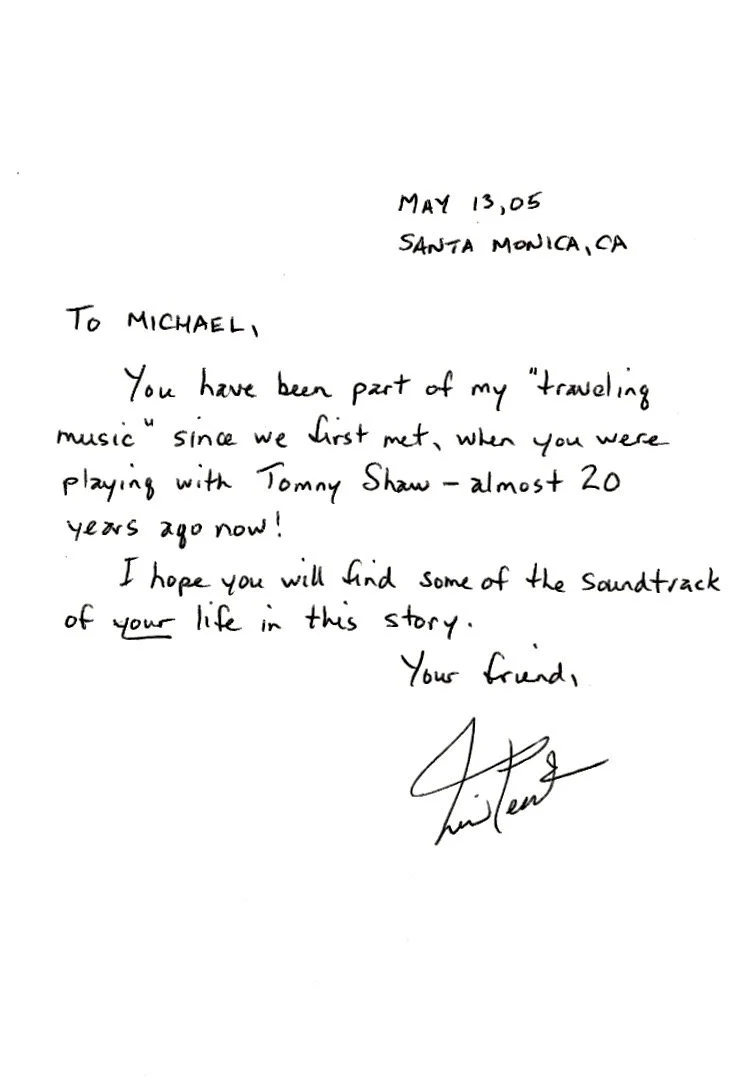 MAY 13,05
SANTA MONICA, CA
TO MICHAEL,
You have been part of my "traveling
music" since we first met, when you were
playing with Tommy Shaw – almost 20
years ago now!
I hope you will find some of the soundtrack
of your life in this story.
Your friend,